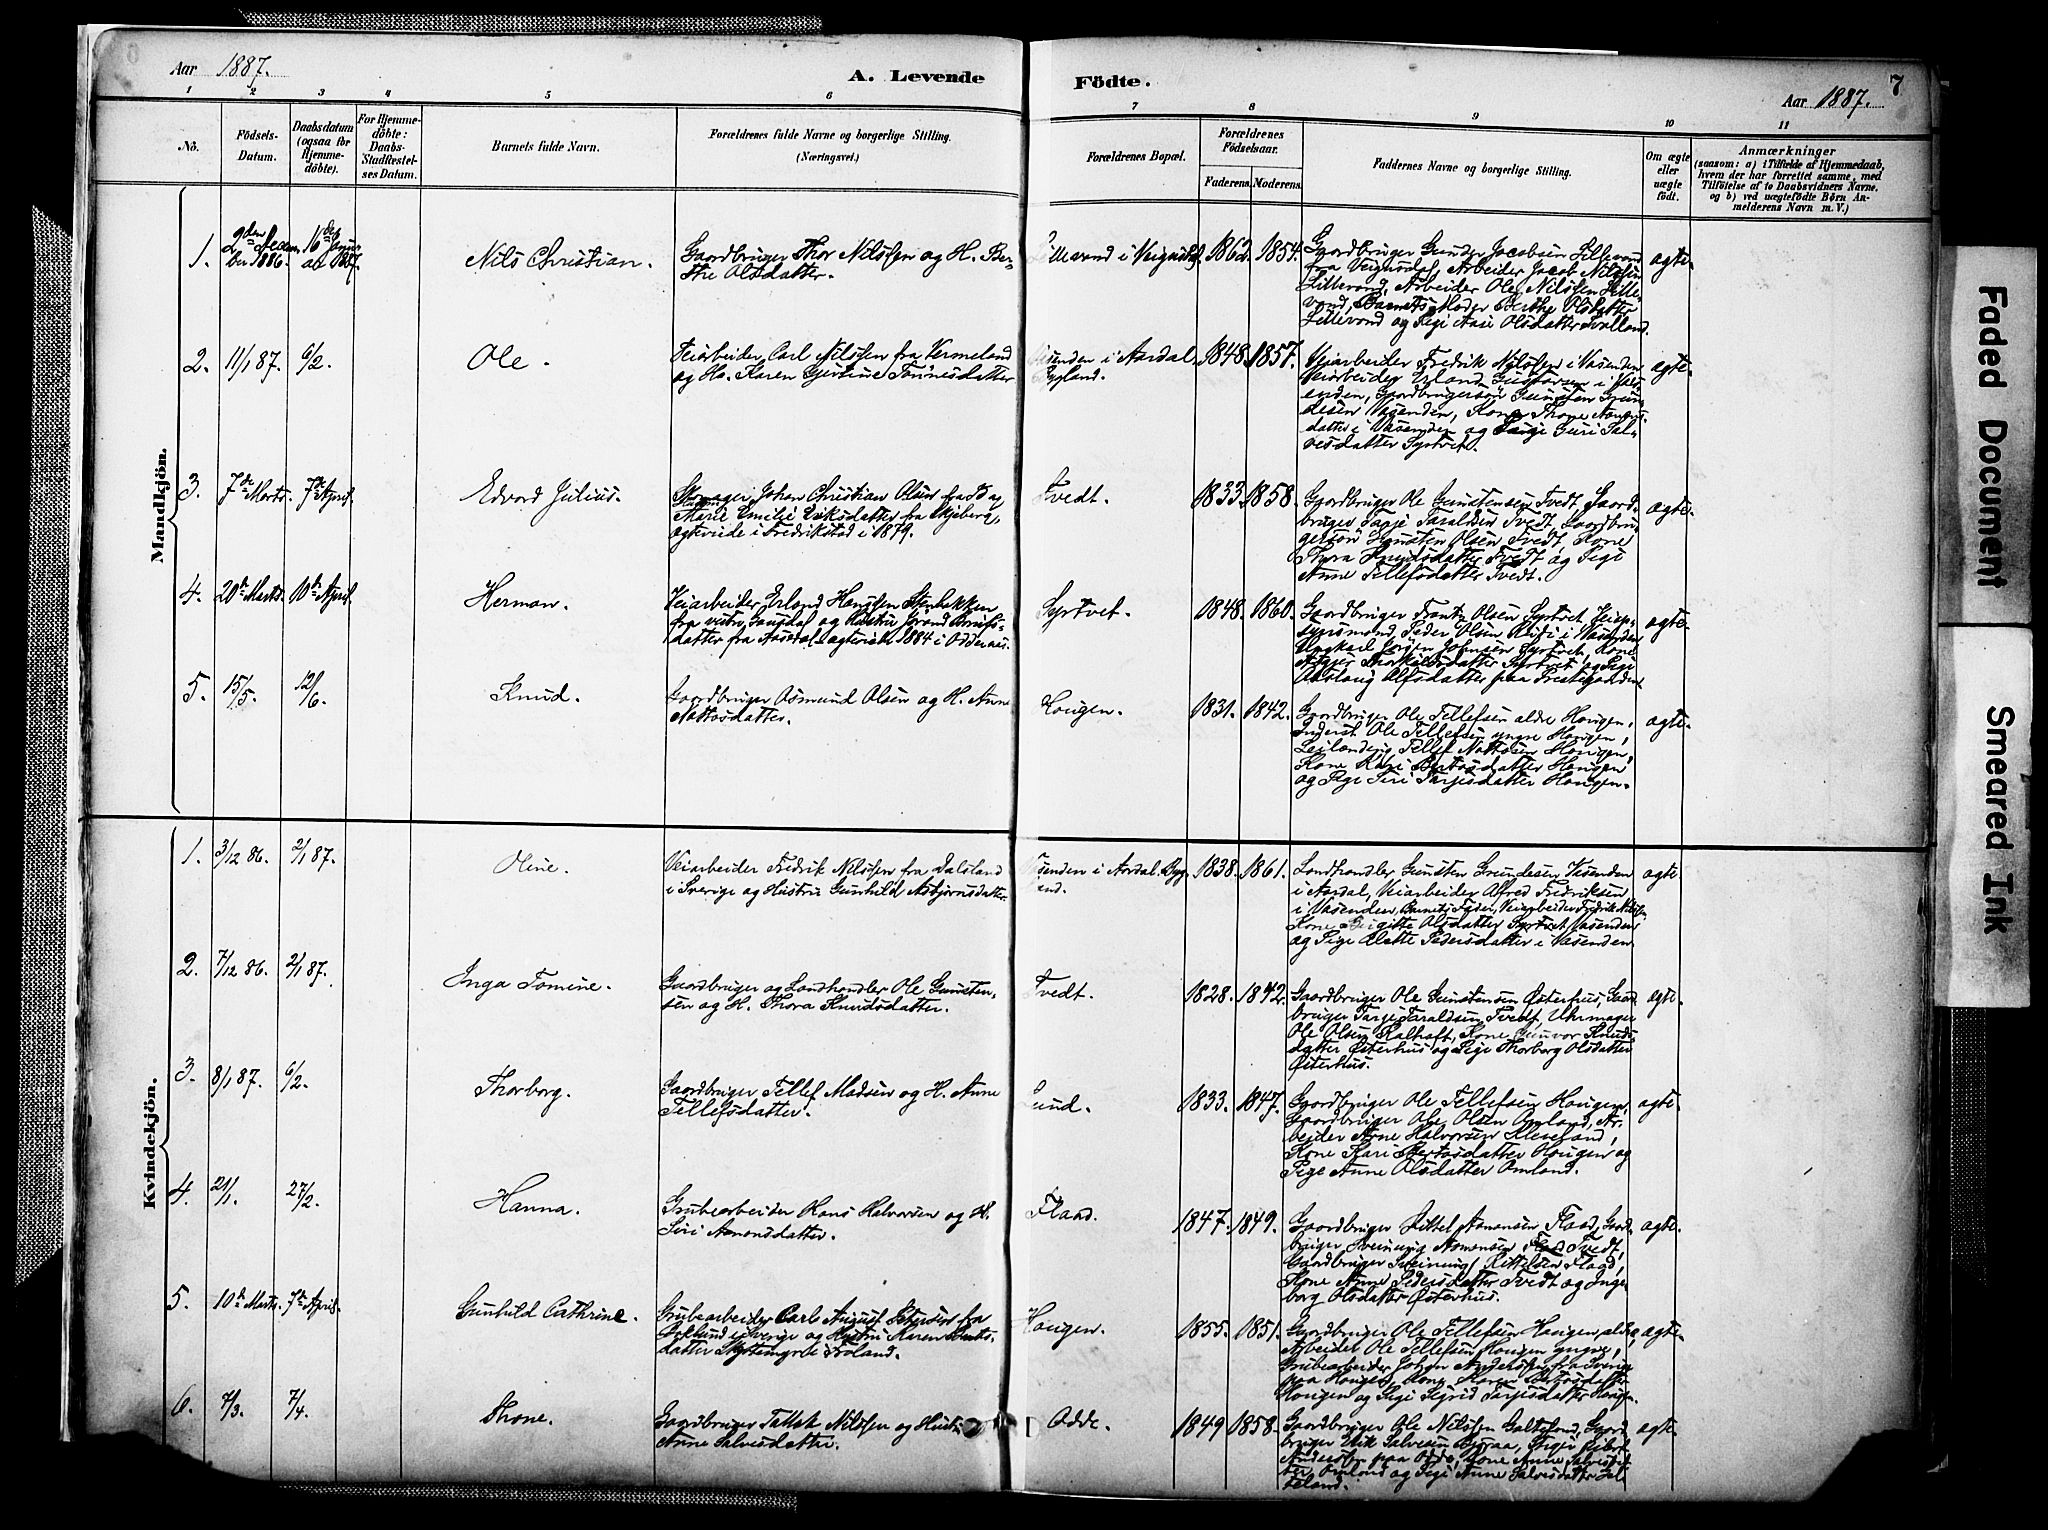 Aar 1887.
A. Levende
Födte.
7
Aar 1887.
1 2 3 4 5 6 7 8 9 10 11
No.
Födsels-
Datum.
Daabsdatum
(ogsaa for
Hjemme-
döbte).
For Hjemme-
döbte:
Daabs-
Stadfæstel-
ses Datum.
Barnets fulde Navn.
Forældrenes fulde Navne og borgerlige Stilling.
(Næringsvei.)
Forældrenes Bopæl.
Forældrenes
Födselsaar.
Faderens. Moderens.
Faddernes Navne og borgerlige Stilling.
Om ægte
eller
uægte
födt.
Anmærkninger
(saasom: a) i Tilfælde af Hjemmedaab,
hvem der har forrettet samme, med
Tilföielse af to Daabsvidners Navne,
og b) ved uægtefödte Börn An-
melderens Navn m. V.)
Mandkjön.
1.
Nils Christian.
Gaardbruger Thor Nilssen og H. Ber-
the Olsdatter.
1862. 1854.
Gaardbruger Gunder Jacobsen Lillevand
fra Veignsdal, Arbeider Jacob Nilssen
Lillevand, Arbeider Ole Nilssen Lille-
vand, Barnets Moder Berthe Olsdatter
Lillevand og Pige Aase Olsdatter
ægte.
2. 11/1 87. 6/2.
Ole.
Veiarbeider Carl Nilssen fra Vermeland
og H. Karen Gjertine Tönnesdatter
i Aardal
Bygland.
1848. 1857.
Veiarbeider Fredrik Nilssen i Vasenden
Veiarbeider Erland
enden, Gaardbrugersön Gunsten Grun-
desen Vasenden, Kone Thone
datter i Vasenden og Pige Guri Sal-
vesdatter Syrtvet.
ægte.
3. 7de Marts. 7de April.
Edvard Julius.
Skomager Johan Christian Olsen
Marie Emilie Eriksdatter fra Skjeberg,
ægteviede i Fredrikstad i 1879.
Tvedt.
1833. 1858.
Gaardbruger Ole Gunstensen Tvedt, Gaard-
bruger Tarje Taraldsen Tvedt, Gaardbru-
gersön Gunsten Olsen Tvedt, Kone
Thora Knudsdatter Tvedt og Pige
Anne Tellefsdatter Tvedt.
ægte.
4. 20de Marts. 10de April.
Herman.
Veiarbeider Erland Hanssen Stenbekken
fra vestre Gausdal og Hustru
datter fra ægteviede 1884 i Oddernæs.
Syrtvet.
1848. 1860.
Gaardbruger Olsen Syrtvet,
Peder Olsen i Vasenden
Ungkarl Jörgen Johnsen Syrtvet, Kone
Thorkildsdatter Syrtvet og Pige
Aaslaug Olsdatter paa
ægte.
5. 15/5. 12/6.
Knud.
Gaardbruger Osmund Olsen og H. Anne
Mattosdatter.
Hougen.
1831. 1842.
Gaardbruger Ole Tellefsen ældre Hougen,
Inderst Ole Tellefsen yngre Hougen,
Leilænding Tellef Hougen,
Kone Kari Bertosdatter Hougen
og Pige Siri Tarjesdatter Hougen.
ægte.
Kvindekjön.
1. 3/12 86. 2/1 87.
Oline.
Veiarbeider Fredrik Nilssen fra Dalsland
i Sverige og Hustru Gunhild Asbjörnsdatter
Vasenden i Aardal. Byg-
land.
1838. 1861.
Landhandler Gunsten Grundesen Vasenden
i Aardal, Veiarbeider Alfred Fredriksen
i Vasenden, Barnets Fader, Veiarbeider Fredrik Nilssen,
Kone Birgitte Olsdatter Syrtvet, Vasenden
og Pige Pedersdatter i Vasenden.
ægte
2. 7/12 86. 2/1 87.
Inga Tomine.
Gaardbruger og Landhandler Ole Gunsten-
sen og H. Thora Knudsdatter.
Tvedt.
1828. 1842.
Gaardbruger Ole Gunstensen Österhus, Gaard-
bruger Tarje Taraldsen Tvedt, Uhrmager
Ole Olsen Kalhaft, Kone Gunvor Knuds-
datter Österhus og Pige Thorborg Olsdatter
Österhus.
ægte.
3. 8/1 87. 6/2.
Thorborg.
Gaardbruger Tellef Madsen og H. Anne
Tellefsdatter.
Lund.
1833. 1847.
Gaardbruger Ole Tellefsen Hougen,
Gaardbruger Ole Olsen Omland, Ar-
beider Arne Halvorsen Kleveland,
Kone Kari Bertosdatter Hougen og
Pige Anne Olsdatter Omland.
ægte.
4. 21/1. 27/2.
Hanna.
Grubearbeider Hans Halvorsen og H.
Siri Asmansdatter.
Flaad.
1847. 1849.
Gaardbruger Kittel Asmansen Flaad, Gaard-
bruger Sveinung Asmansen Tvedt,
Gaardbruger Sveinung Kittelsen Flaad,
Kone Anne Pedersdatter Tvedt og Inge-
borg Olsdatter Österhus.
ægte.
5. 10de Marts. 7de April.
Gunhild Cathrine.
Grubearbeider Carl August Petersen fra
i Sverige og Hustru Karen
datter i Froland.
Hougen.
1855. 1851.
Gaardbruger Ole Tellefsen Hougen, ældre,
Arbeider Ole Tellefsen Hougen yngre,
Grubearbeider Johan fra Sverige
paa Hougen, Kone Karen
Hougen og Pige Sigrid Tarjesdatter Hougen.
ægte.
6. 7/3. 7/4.
Thone.
Gaardbruger Nilssen og Hustru
Anne Salvesdatter.
Odde.
1849 1858.
Gaardbruger Ole Nilssen Gaard-
bruger Erik Salvesen
paa Odde, Kone Anne
Omland og Pige Anne Salvesdatter
ægte.
Faded Document
Smeared Ink